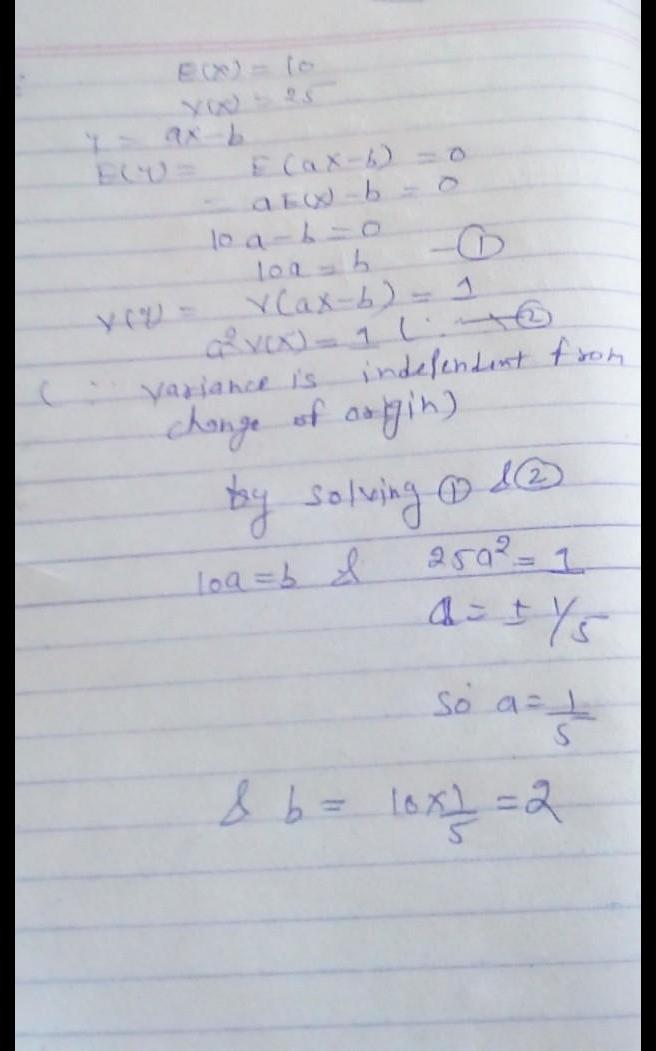 E(x) = 10
V(x) = 25
Y = ax-b
E(Y) = E(ax-b) = 0
= aE(x)-b = 0
10a-b = 0
10a = b -①
V(Y) = V(ax-b) = 1
a²V(x) = 1 (∵ →②
(∵ variance is independent from
change of origin)
by solving ① & ②
10a=b & 25a²=1
a = ± 1/5
so a = 1/5
& b = 10×1/5 = 2